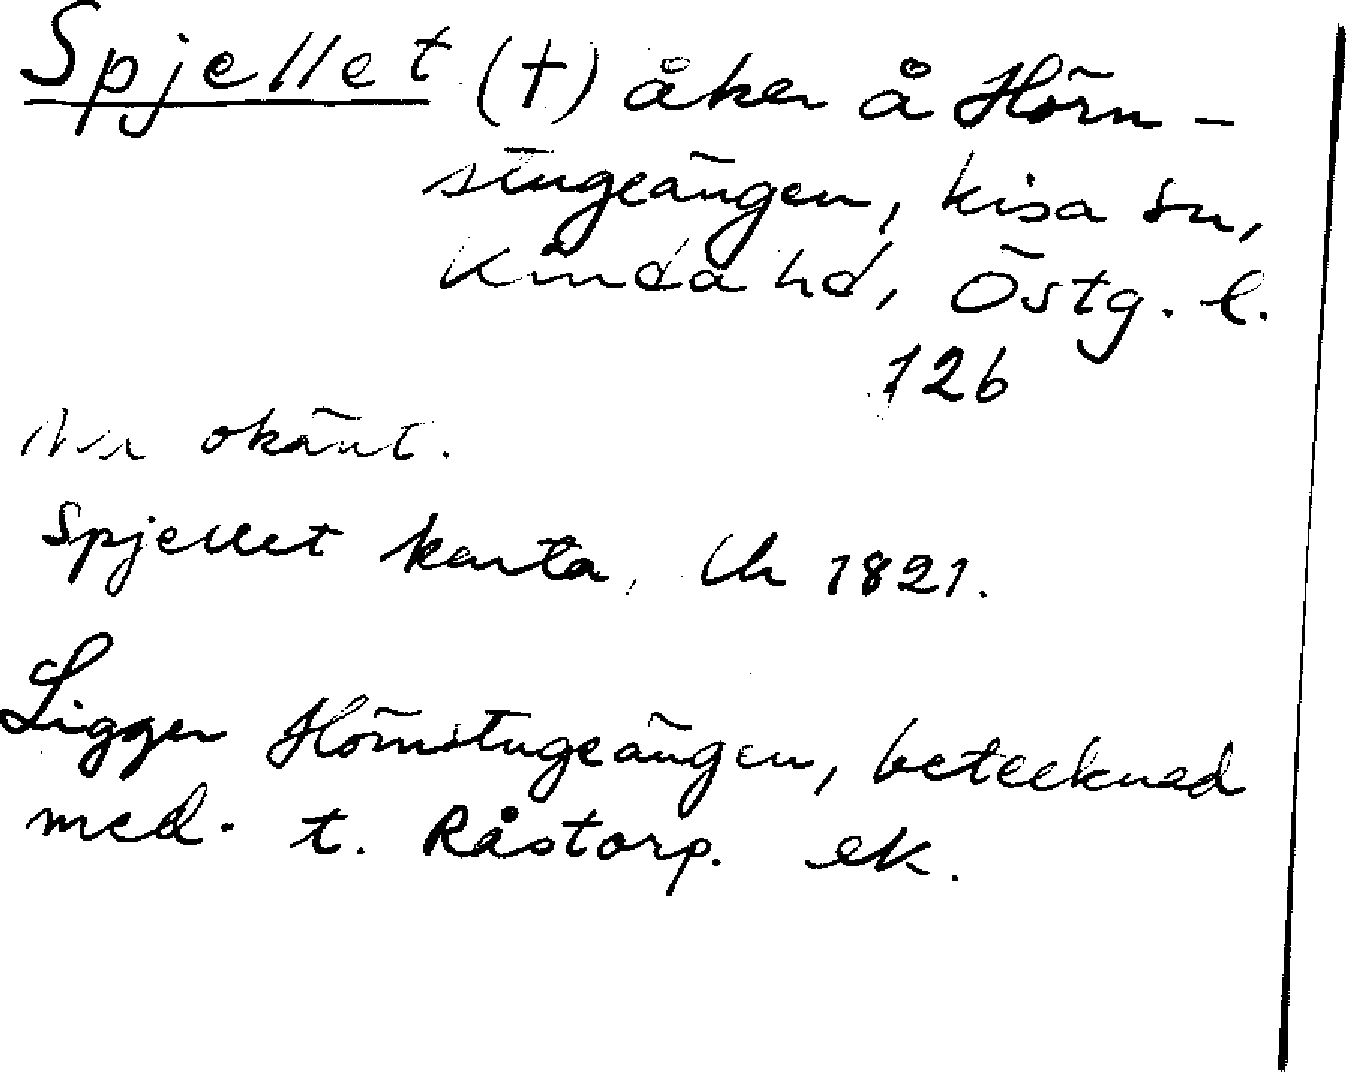 Spjellet (†) åker å Hörn-
stugeängen, Kisa sn,
Kinda hd, Östg. l.
126
Nu okänt.
Spjellet karta, 1821.
Ligger Hörnstugeängen, betecknad
med. t. Råstorp. ek.